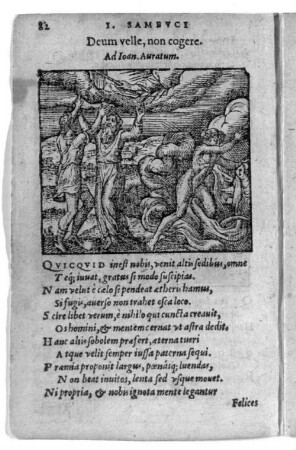 82 I. SAMBVCI
Deum velle, non cogere.
Ad Ioan. Auratum.
QVICQVID inest nobis, venit altis sedibus, omne
Teq; iuuat, gratus si modo suscipias.
Nam velut è cælo si pendeat ætheris hamus,
Si fugis, auerso non trahet esca loco.
Scire libet verum, è nihilo qui cuncta creauit,
Os homini, & mentem cernat vt astra dedit,
Hanc aliis sobolem præfert, æterna tueri
Atque velit semper iussa paterna sequi.
Præmia proponit largus, pœnásq; luendas,
Non beat inuitos, lenta sed vsque mouet.
Ni propria, & nobis ignota mente legantur
Felices